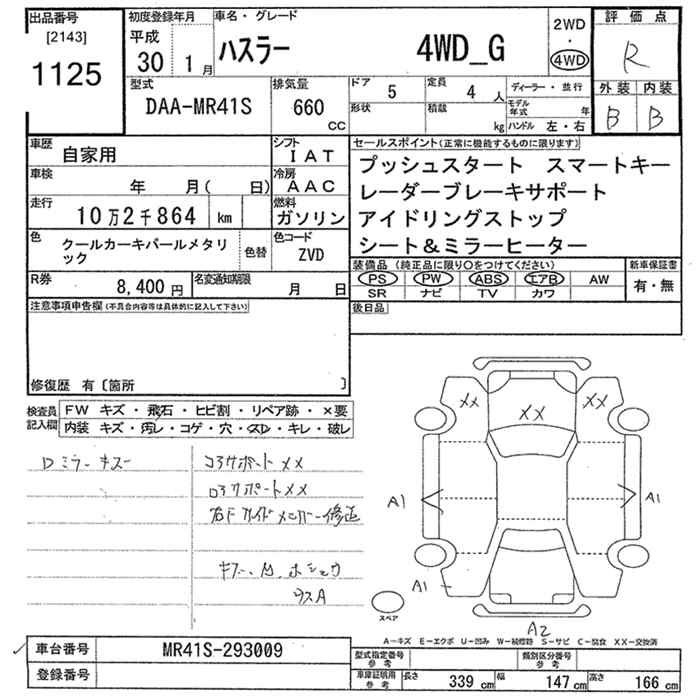 出品番号
[2143]
1125
初度登録年月
平成
30 1月
車名・グレード
ハスラー 4WD_G
2WD
・
4WD
評価点
R
外装 内装
B B
型式
DAA-MR41S
排気量
660
CC
ドア 5
定員 4人
ディーラー・並行
形状
積載 kg
モデル年式 年
ハンドル 左・右
車歴
自家用
シフト
IAT
車検
年 月( 日)
冷房
AAC
走行
10万2千864 km
燃料
ガソリン
色
クールカーキパールメタリック
色替
色コード
ZVD
R券
8,400円
名変通知期限
月 日
セールスポイント(正常に機能するものに限ります)
プッシュスタート スマートキー
レーダーブレーキサポート
アイドリングストップ
シート&ミラーヒーター
装備品(純正品に限り○をつけてください)
新車保証書
PS PW ABS エアB AW
SR ナビ TV カワ
有・無
後日品
注意事項申告欄(不具合内容等は具体的に記入して下さい)
修復歴 有〔箇所 〕
検査員記入欄
FW キズ・飛石・ヒビ割・リペア跡・×要
内装 キズ・汚レ・コゲ・穴・スレ・キレ・破レ
Dミラーキズ
コアサポートXX
ロアサポートXX
右Fサイドメンバー修正
キズ、凹、
ウスA
XX
XX
XX
A1
A1
A1
A2
スペア
A-キズ E-エクボ U-凹み W-補修跡 S-サビ C-腐食 XX-交換済
車台番号 MR41S-293009
登録番号
型式指定番号
参考
類別区分番号
参考
車庫証明用
参考
長さ 339cm
幅 147cm
高さ 166cm